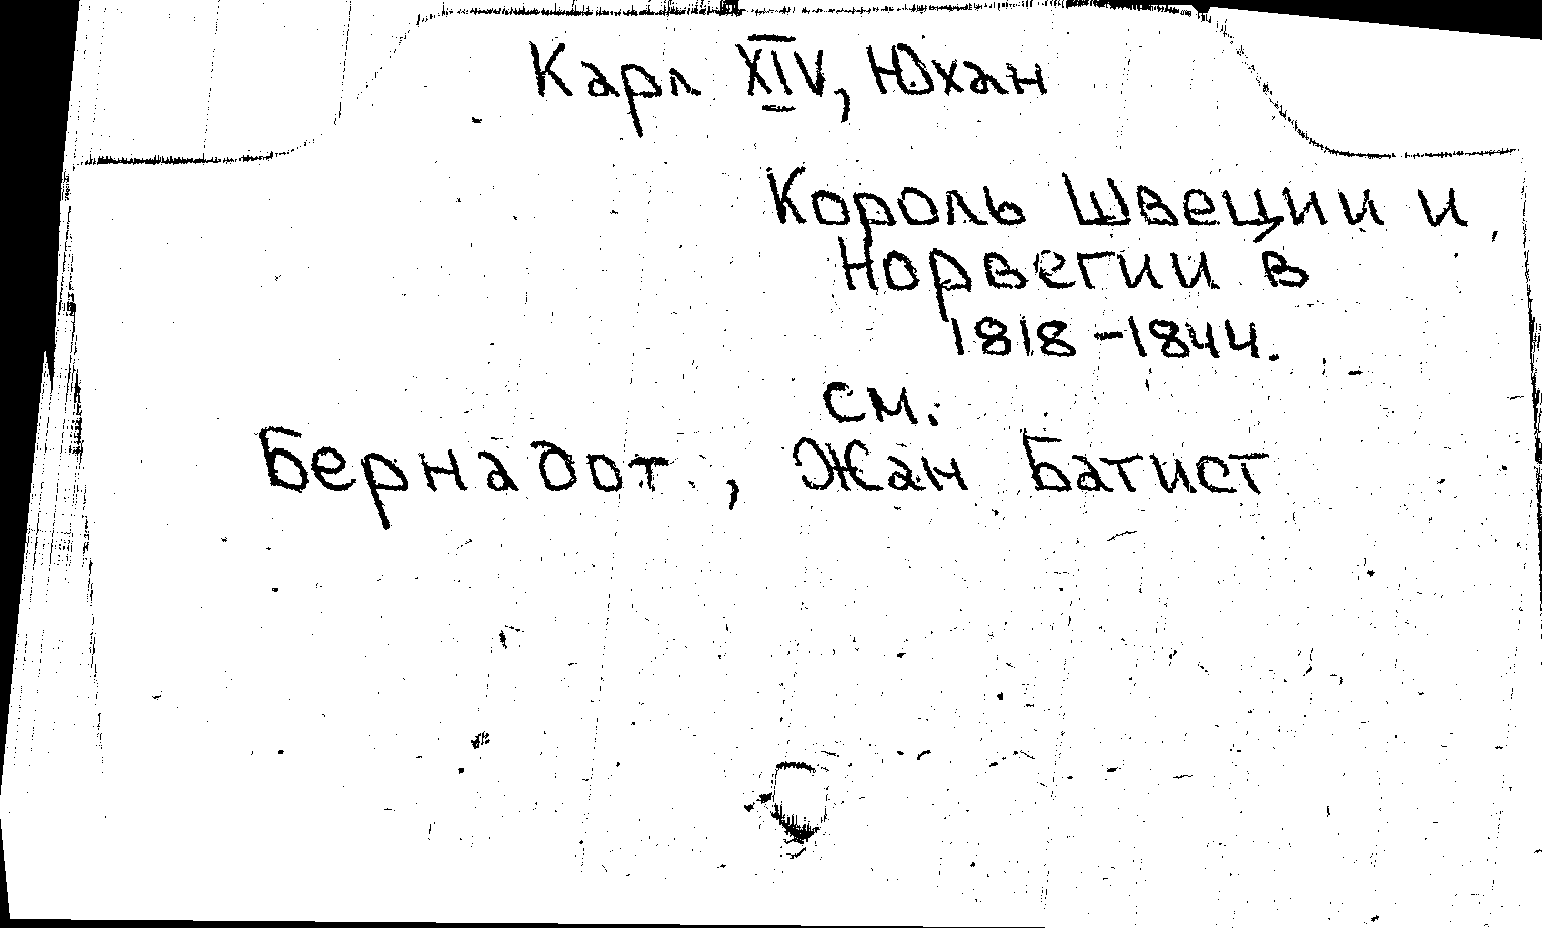 Карл XIV, Юхан
Король Швеции и
Норвегии в
1818-1844.
см.
Бернадот, Жан Батист